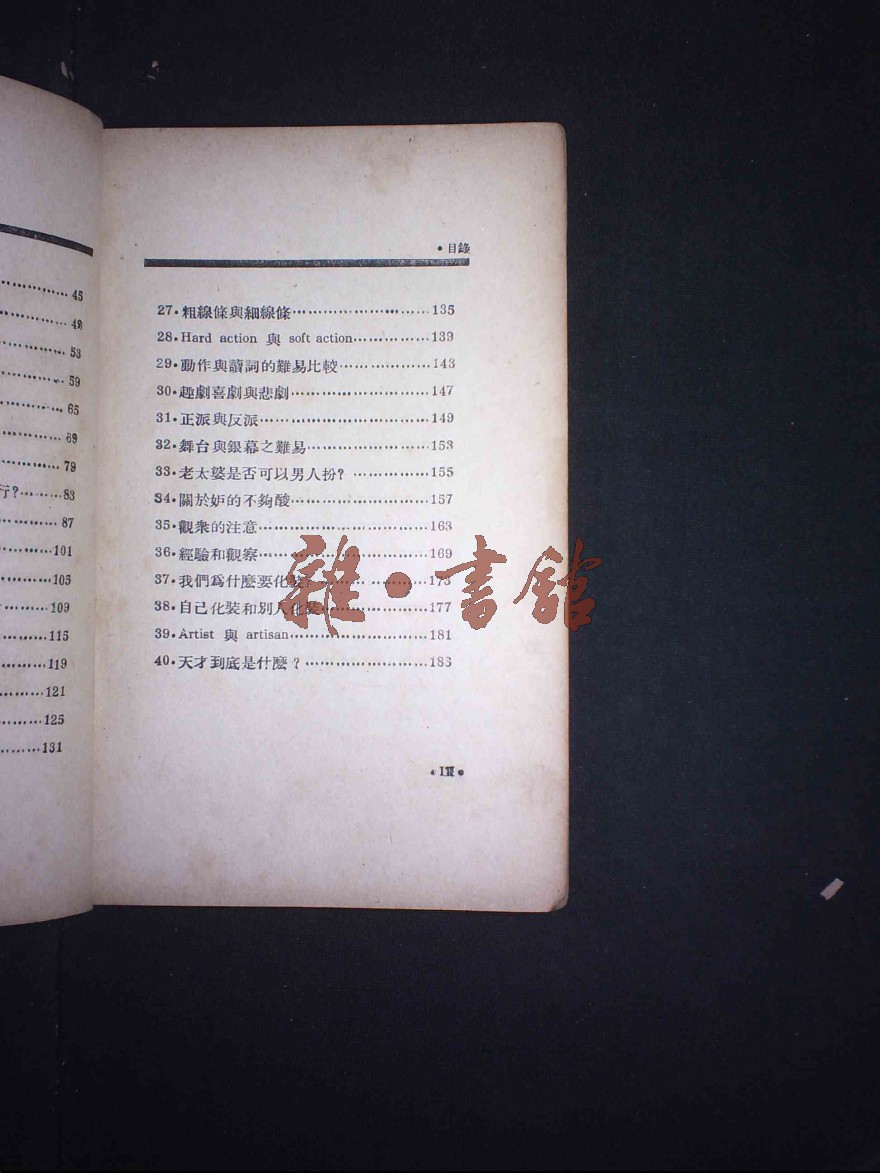 45
49
53
59
65
69
79
行?………83
87
101
105
109
115
119
121
125
131
•目錄
27•粗線條與細線條…………………………135
28•Hard action 與 soft action……………139
29•動作與讀詞的難易比較………………143
30•趣劇喜劇與悲劇………………………147
31•正派與反派……………………………149
32•舞台與銀幕之難易……………………153
33•老太婆是否可以男人扮?……………155
34•關於妒的不夠酸………………………157
35•觀衆的注意……………………………163
36•經驗和觀察……………………………169
37•我們爲什麼要化裝?…………………173
38•自己化裝和別人化裝…………………177
39•Artist 與 artisan………………………181
40•天才到底是什麽?……………………183
雜•書館